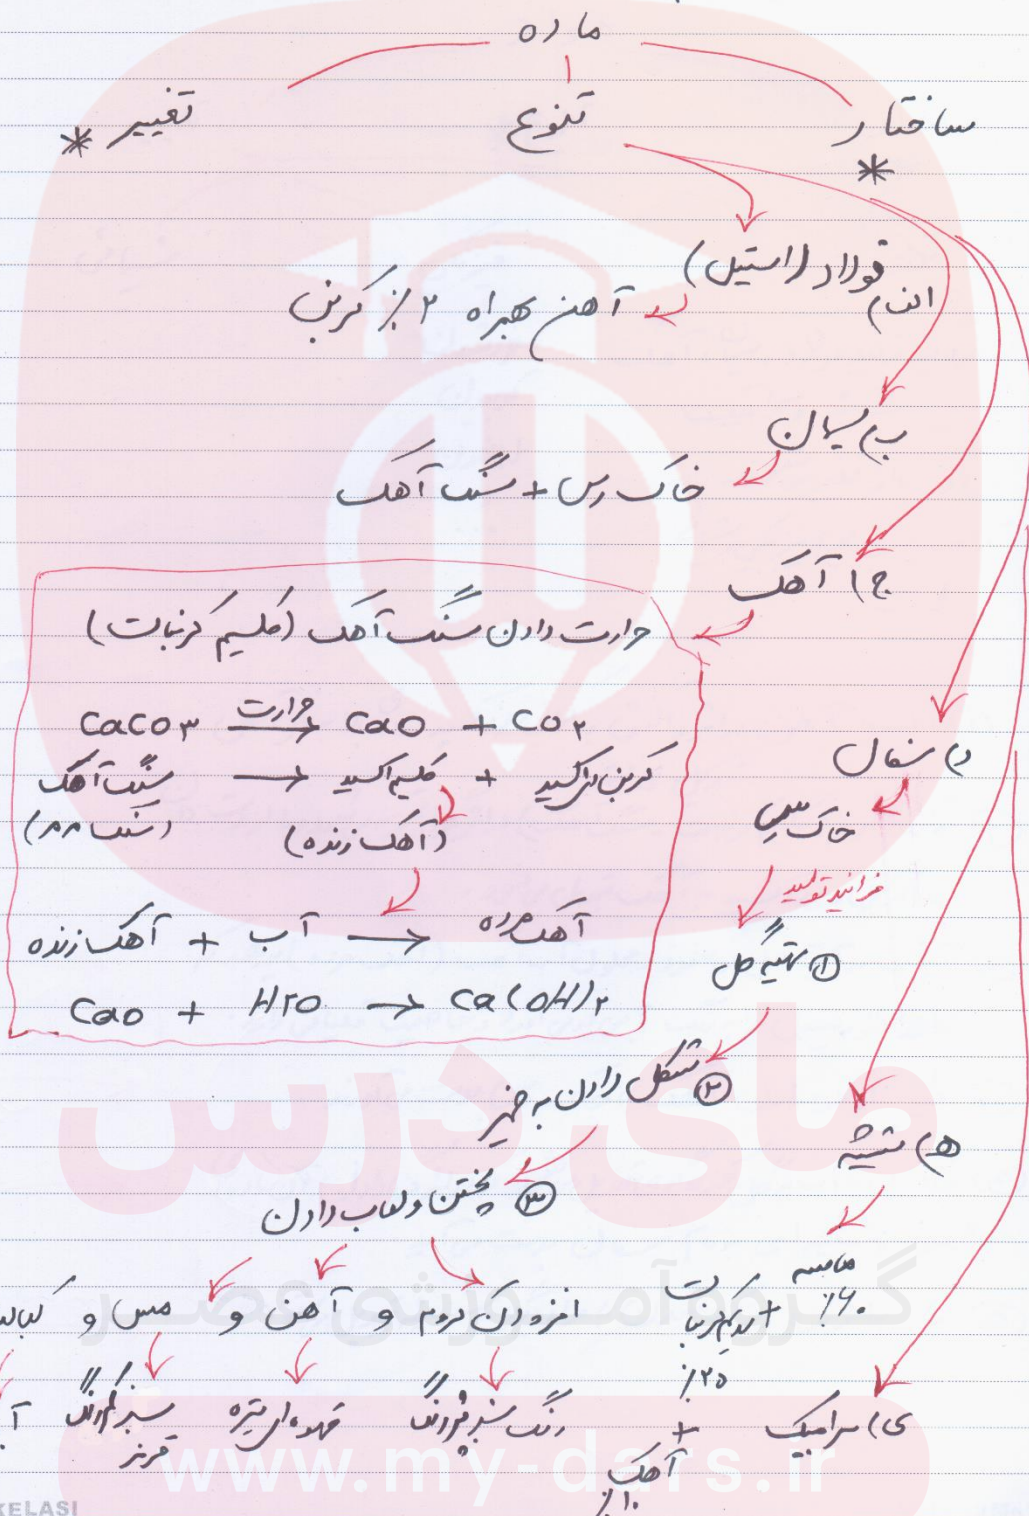 ماده
ساختار * تنوع تغییر *
الف) فولاد (استیل)
آهن بهمراه ۲٪ کربن
ب) سیمان
خاک رس + سنگ آهک
ج) آهک
حرارت دادن سنگ آهک (کلسیم کربنات)
CaCO۳ حرارت → CaO + CO۲
سنگ آهک → کلسیم اکسید + کربن دی اکسید
(سنگ مرمر) (آهک زنده)
آهک زنده + آب → آهک مرده
CaO + H۲O → Ca(OH)۲
د) سفال
خاک رس
فرآیند تولید
① تهیه گل
② شکل دادن به خمیر
③ پختن و لعاب دادن
افزودن کروم و آهن و مس و کبالت
رنگ سبز پررنگ قهوه‌ای تیره سبز کم‌رنگ قرمز
ه) شیشه
ماسه ۶۰٪ + سدیم کربنات ۲۵٪ + آهک ۱۰٪
ی) سرامیک
مای درس
گروه آموزشی عصر
www.my-dars.ir
KELASI